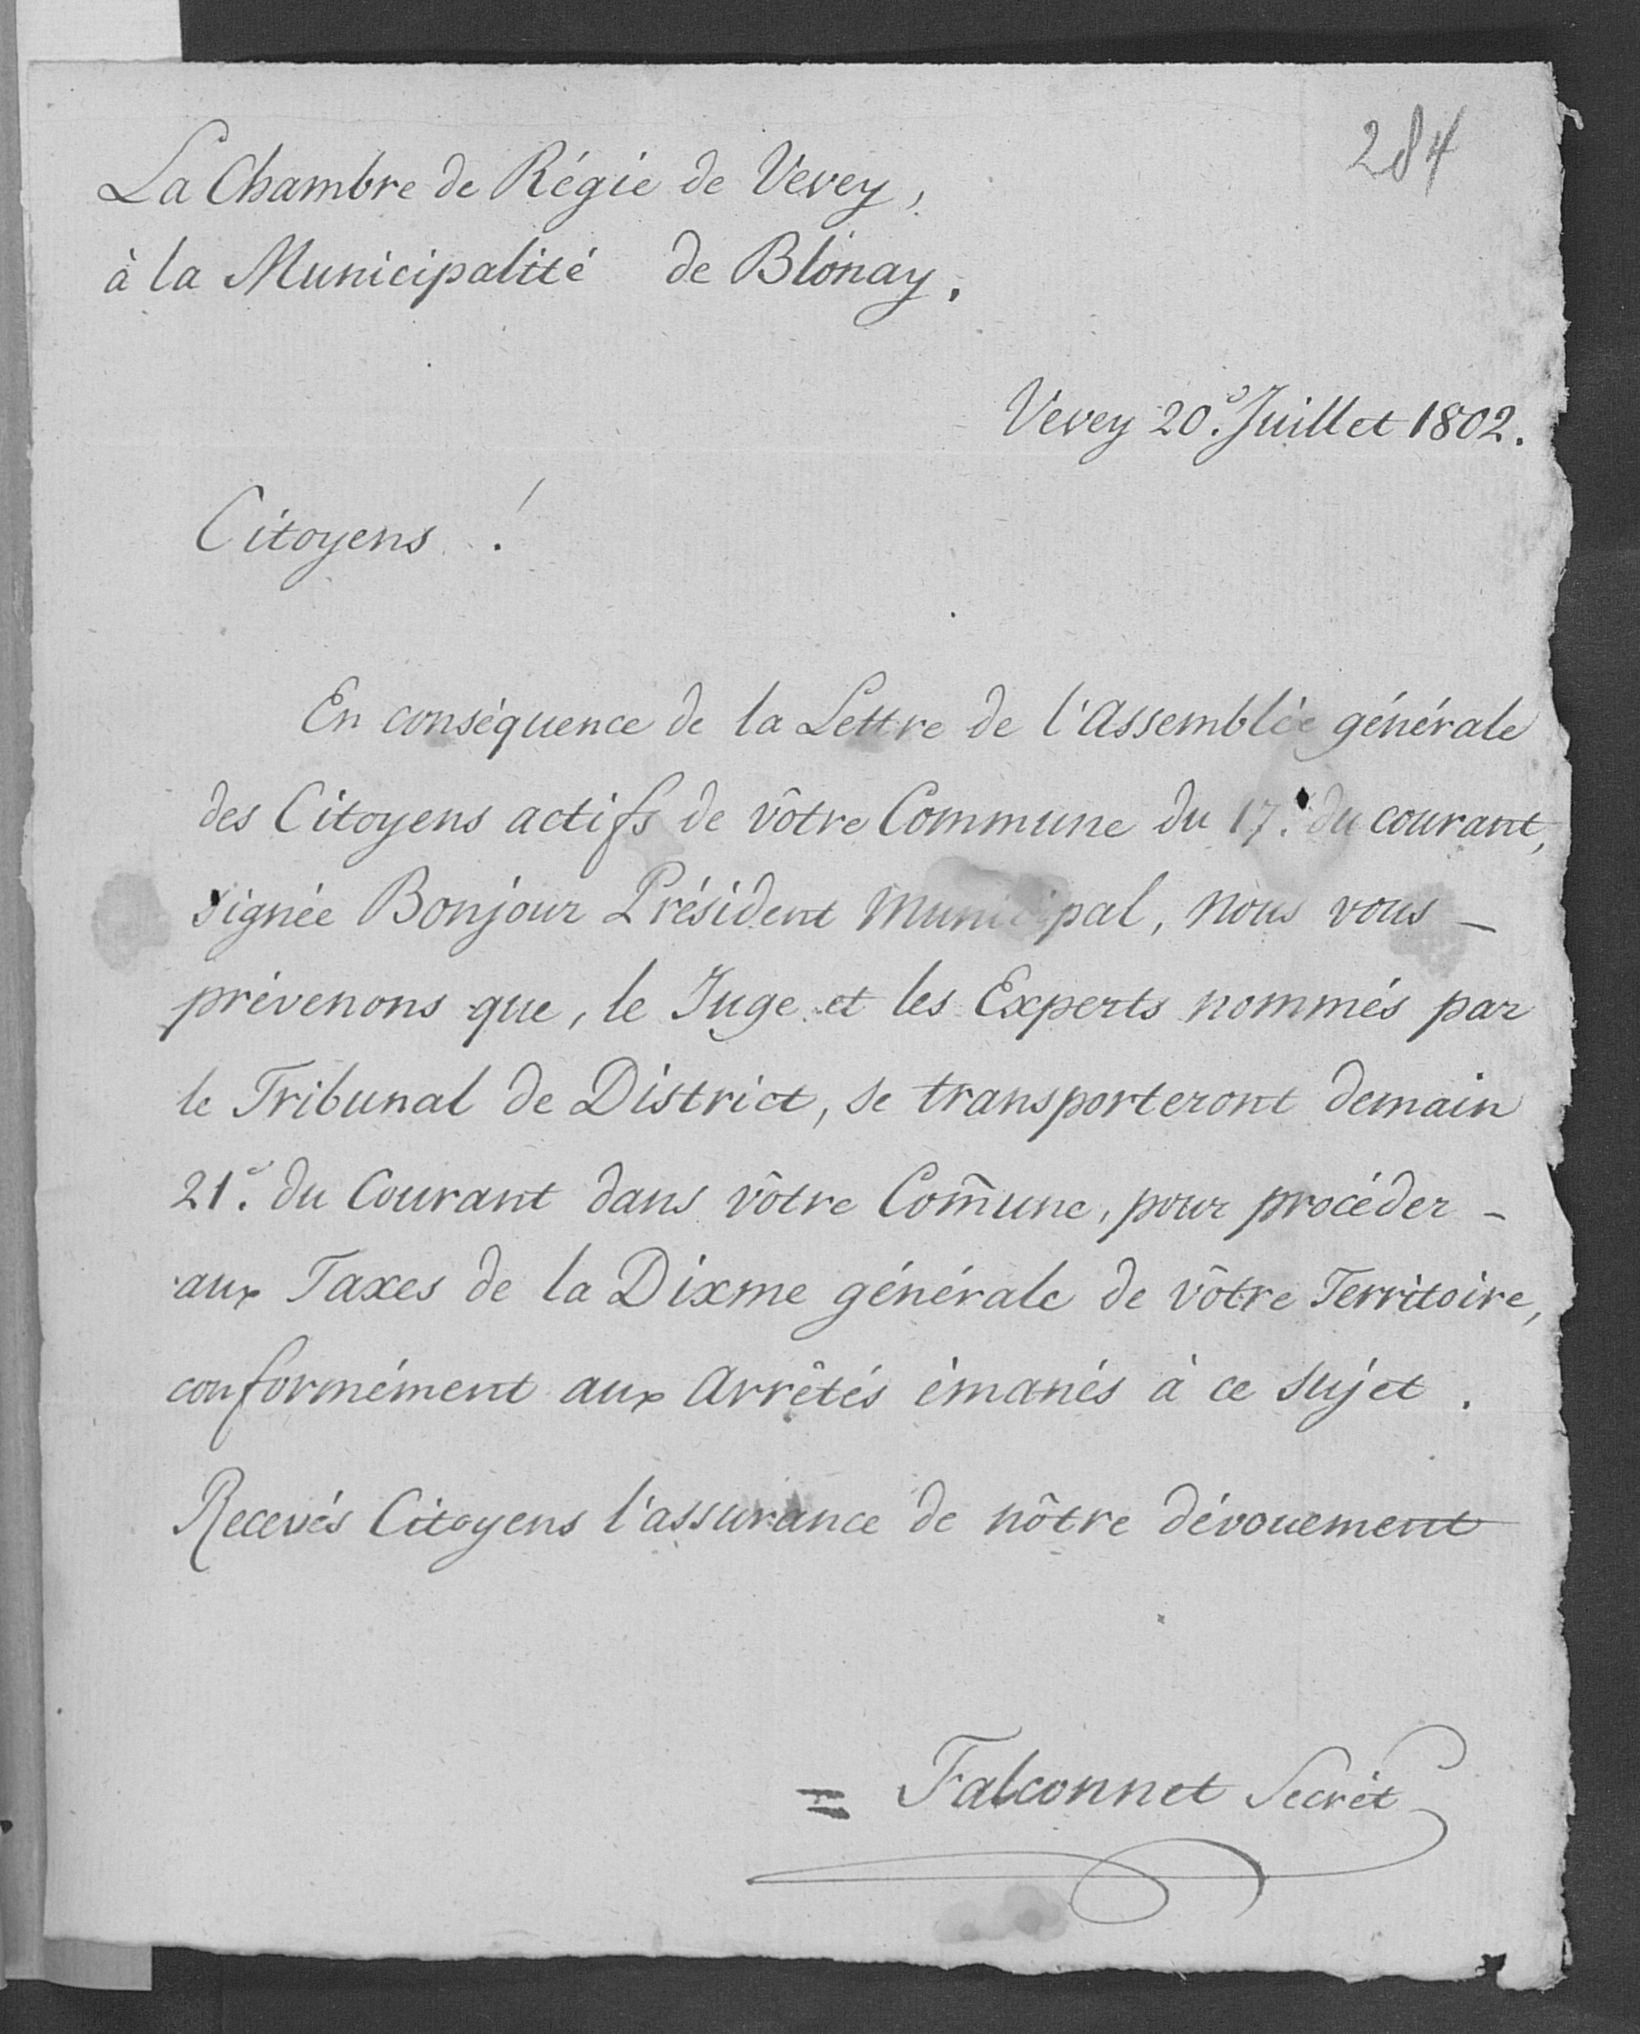 284
La Chambre de Régie de Vevey,
à la Municipalité de Blonay.
Vevey 20.e Juillet 1802.
Citoyens !
En conséquence de la Lettre de l'Assemblée générale
des Citoyens actifs de vôtre Commune du 17.e du courant,
signée Bonjour Président Municipal, nous vous –
prévenons que, le Juge et les Experts nommés par
le Tribunal de District, se transporteront demain
21.e du Courant dans vôtre Com̃une, pour procéder –
aux Taxes de la Dixme générale de vôtre Territoire,
conformément aux Arrêtés émanés à ce sujet.
Recevés Citoyens l'assurance de nôtre dévouement
= Falconnet Secrét